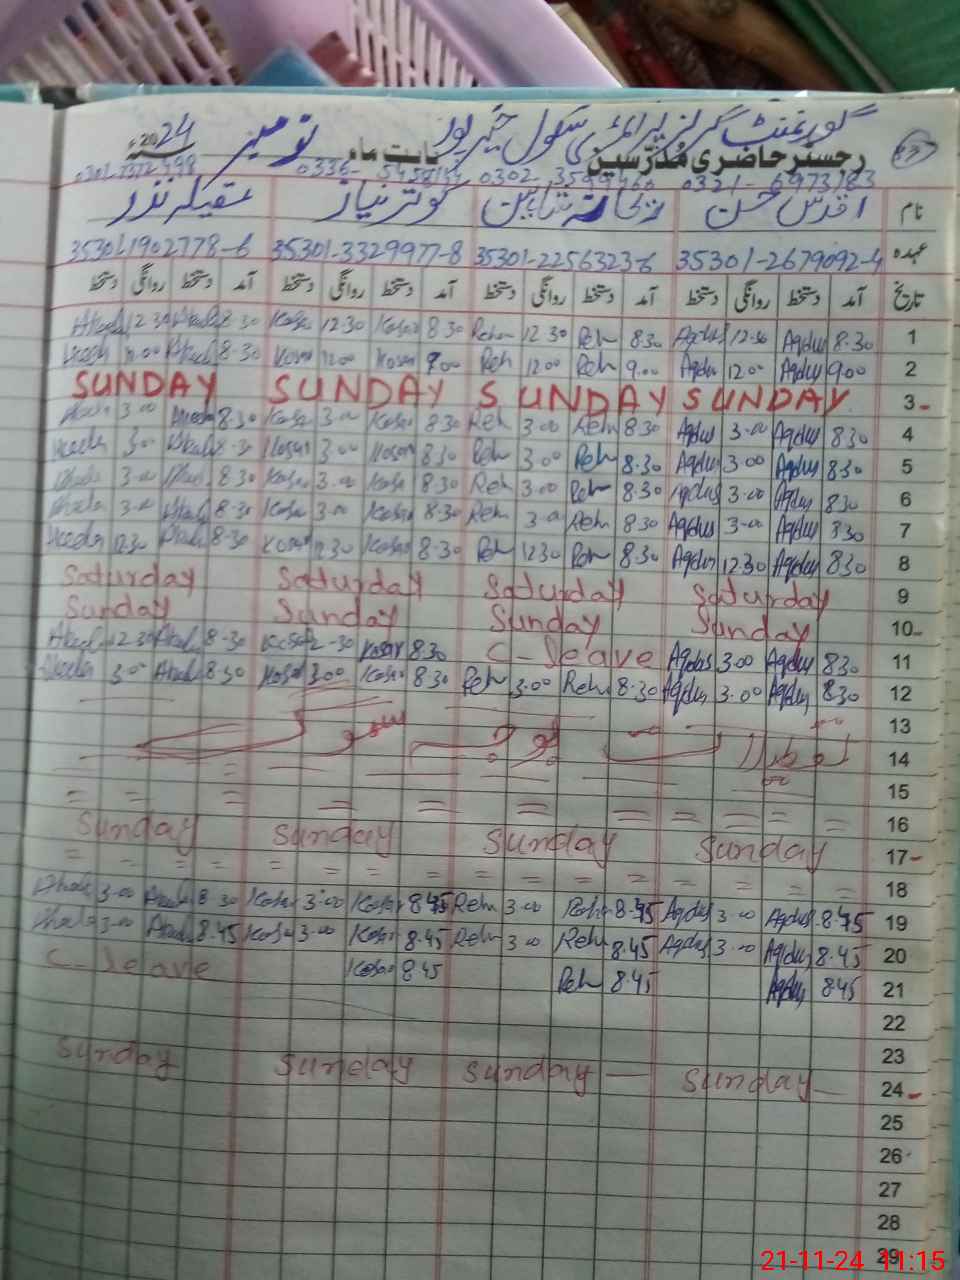 گورنمنٹ گرلز پرائمری سکول خیرپور
رجسٹر حاضری مُدرّسین بابت ماہ نومبر 2024ء
0321-6973183 0302-3599460 0336-5458134
نام اقدس حسن ریحانہ شاہین کوثر نیاز عقیلہ نذر
عہدہ 35301-2679092-4 35301-2256323-6 35301-3329977-8 35301-1902778-6
تاریخ آمد دستخط روانگی دستخط آمد دستخط روانگی دستخط آمد دستخط روانگی دستخط آمد دستخط روانگی دستخط
12.30 8.30 Kosar 12.30 Kosar 8.30 Reh 12.30 Reh 8.30 Aqdus 12.30 Aqdus 8.30 1
12.00 8.30 Kosar 12.00 Kosar 9.00 Reh 12.00 Reh 9.00 Aqdus 12.00 Aqdus 9.00 2
SUNDAY SUNDAY SUNDAY SUNDAY 3
3.00 8.30 Kosar 3.00 Kosar 8.30 Reh 3.00 Reh 8.30 Aqdus 3.00 Aqdus 8.30 4
3.00 8.30 Kosar 3.00 Kosar 8.30 Reh 3.00 Reh 8.30 Aqdus 3.00 Aqdus 8.30 5
3.00 8.30 Kosar 3.00 Kosar 8.30 Reh 3.00 Reh 8.30 Aqdus 3.00 Aqdus 8.30 6
3.00 8.30 Kosar 3.00 Kosar 8.30 Reh 3.00 Reh 8.30 Aqdus 3.00 Aqdus 8.30 7
12.30 8.30 Kosar 12.30 Kosar 8.30 Reh 12.30 Reh 8.30 Aqdus 12.30 Aqdus 8.30 8
Saturday Saturday Saturday Saturday 9
Sunday Sunday Sunday Sunday 10
12.30 8.30 Kosar 2-30 Kosar 8.30 C-leave Aqdus 3.00 Aqdus 8.30 11
3.00 8.30 Kosar 3.00 Kosar 8.30 Reh 3.00 Reh 8.30 Aqdus 3.00 Aqdus 8.30 12
13
تعطیلات بوجہ سموگ 14
15
16
Sunday Sunday Sunday Sunday 17
18
3.00 8.30 Kosar 3.00 Kosar 8.45 Reh 3.00 Reh 8.45 Aqdus 3.00 Aqdus 8.45 19
3.00 8.45 Kosar 3.00 Kosar 8.45 Reh 3.00 Reh 8.45 Aqdus 3.00 Aqdus 8.45 20
C-leave Kosar 8.45 Reh 8.45 Aqdus 845 21
22
23
Sunday Sunday Sunday Sunday 24
25
26
27
28
29
21-11-24 11:15